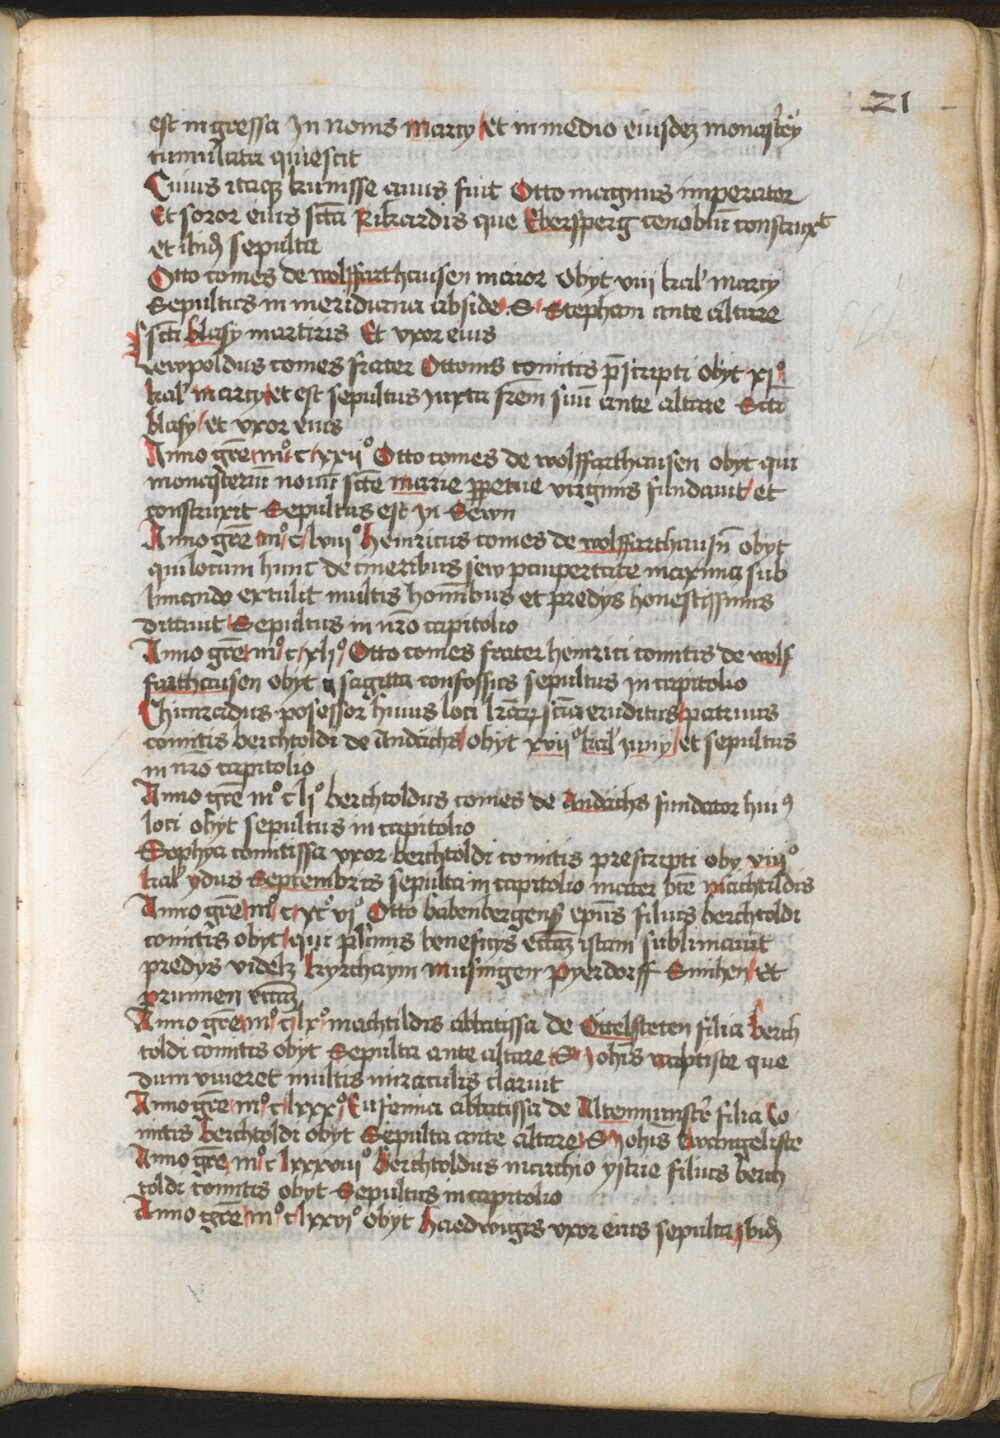 21
est ingressa In nonis marcy et in medio eiusdez monast̄ey
tumulata quiescit
Cuius itaqz kunisse auus fuit Otto magnus imperator
Et soror eius sc̄ta Rikardis que Ebersperg cenobiū construxt
et ibid̄ sepulta
Otto comes de wolffarthausen maior Obyt viij kal' marcy
Sepultus in meridiana abside S Stephani ante altare
scti blasy martiris Et vxor eius
Lewpoldus comes frater Ottonis comitis p̄scripti obyt xjº
kal' marcy et est sepultus Juxta frēm suū ante altare Scti
blasy et vxor eius
Anno grē mº c xxijº Otto comes de wolffarthausen obyt qui
monasteriū nouū scte marie ppetue virginis fundauit et
construxit Sepultus est Jn Sewn
Anno grē mº c lviijº heinricus comes de wolffarthausn̄ obyt
qui locum hunc de cineribus sew paupertate maxima sub
limando extulit multis hom̄ibus et predys honestissimis
ditauit Sepultus in nr̄o capitolio
Anno grē mº c xljº Otto comes frater heinrici comitis de wolf
farthausen obyt sagitta confossus sepultus Jn capitolio
Chunradus posessor huius loci lr̄ar scīa eruditus patruus
comitis berchtoldi de Andichs obyt xvijº kal' Juny et sepultus
in nr̄o capitolio
Anno grē mº c ljº berchtoldus comes de Andichs fundator hui9
loci obyt sepultus in capitolio
Sophya comitissa vxor berchtoldi comitis prescripti oby viijº
kal' ydus Septembris sepulta in capitolio mater btē machtildis
Anno grē mº c xcº vjº Otto babenbergens̄ ep̄us filius berchtoldi
comitis obyt qui plimis beneficys eccāz istam sublimauit
predys videlz kyrchaym musingen pyerdorff Sinihen et
prunnen eccāz
Anno grē mº c lxº machtildis abbatissa de Ottelsteten filia berch
toldi comitis obyt Sepulta ante altare S Johis waptiste que
dum viueret multis miraculis claruit
Anno grē mº c lxxxº Eufemia abbatissa de Altenmunst̄e filia Co
mitis berchtoldi obyt Sepulta ante altare S Johis Ewangeliste
Anno grē mº c lxxxviijº berchtoldus marchio ystrie filius berch
toldi comitis obyt Sepultus in capitolio
Anno grē mº c lxxvjº obyt haedwigis vxor eius sepulta ibid̄